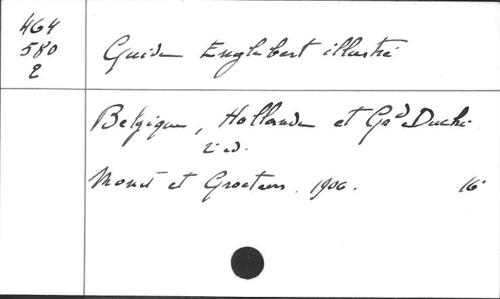 464
580
2
Guide Englebert illustré
Belgique, Hollande et Grd Duché
2e ed.
et Grootaers. 1906. 16°